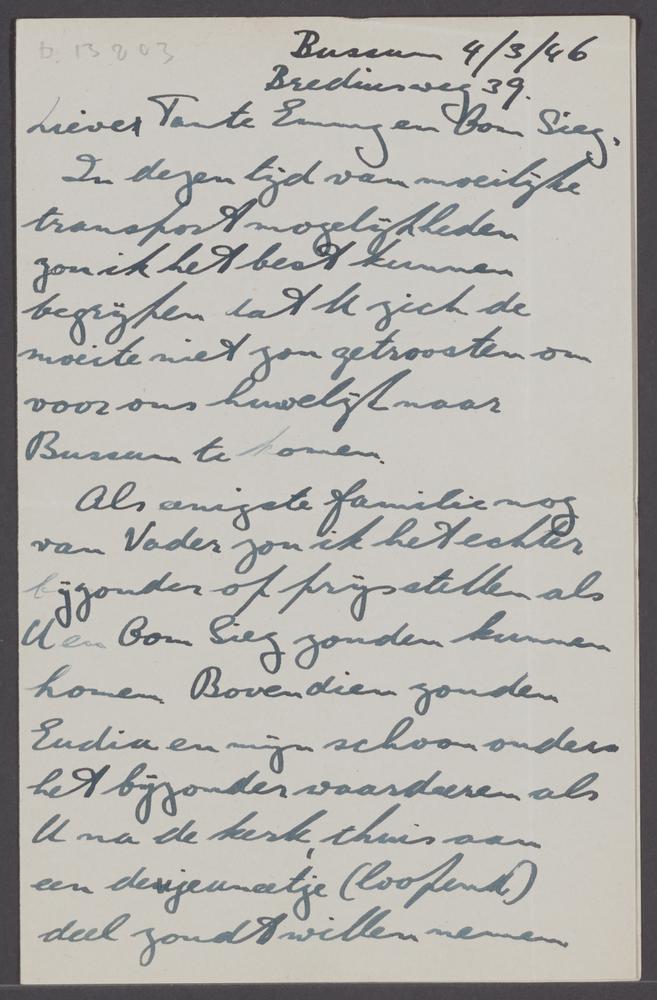 D. 13203
Bussum 4/3/46
Brediusweg 39.
Lieve Tante Emmy en Oom Sieg,
In dezen tijd van moeilijke
transport mogelijkheden
zou ik het best kunnen
begrijpen dat U zich de
moeite niet zou getroosten om
voor ons huwelijk naar
Bussum te komen.
Als eenigste familie nog
van Vader zou ik het echter
bijzonder op prijs stellen als
U en Oom Sieg zouden kunnen
komen. Bovendien zouden
Eudia en mijn schoonouders
het bijzonder waardeeren als
U na de kerk, thuis aan
een dejeuneetje (loopend)
deel zoudt willen nemen